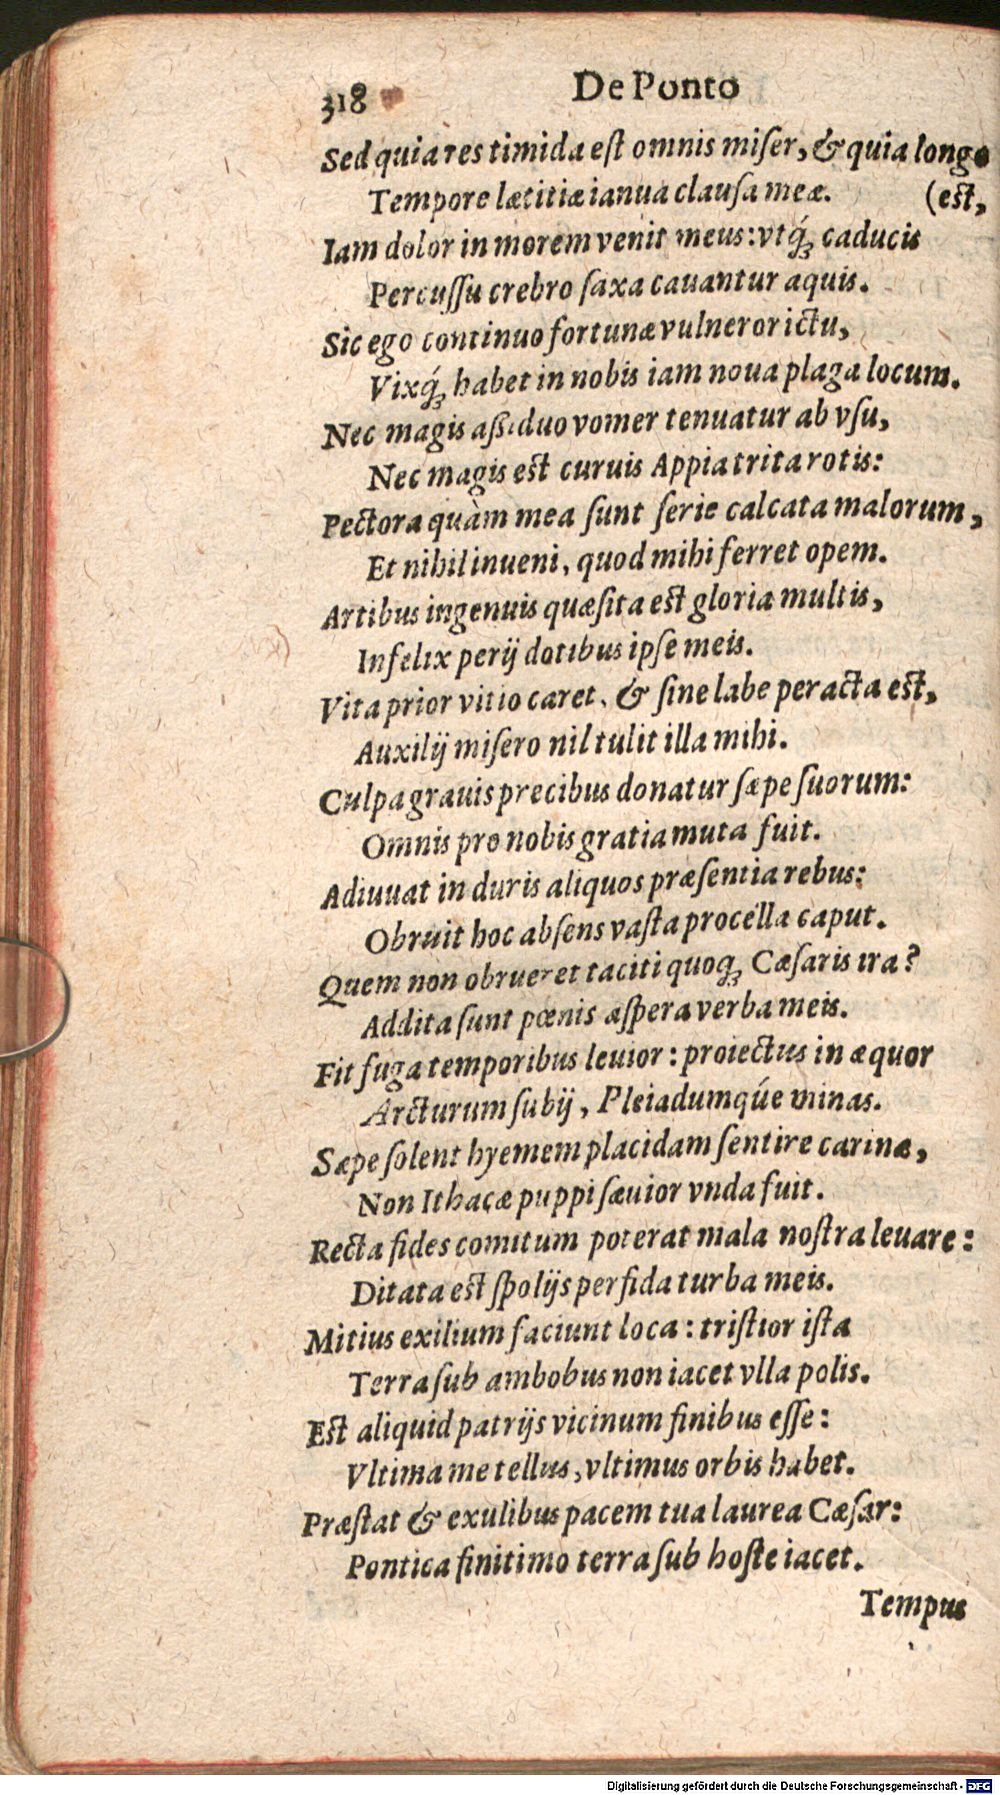 318 De Ponto
Sed quia res timida est omnis miser, & quia longo
Tempore lætitiæ ianua clausa meæ. (est,
Iam dolor in morem venit meus: vtq́; caducis
Percussu crebro saxa cauantur aquis.
Sic ego continuo fortunæ vulneror ictu,
Vixq́; habet in nobis iam noua plaga locum.
Nec magis assiduo vomer tenuatur ab vsu,
Nec magis est curuis Appia trita rotis:
Pectora quàm mea sunt serie calcata malorum,
Et nihil inueni, quod mihi ferret opem.
Artibus ingenuis quæsita est gloria multis,
Infelix perij dotibus ipse meis.
Vita prior vitio caret, & sine labe peracta est,
Auxilij misero nil tulit illa mihi.
Culpa grauis precibus donatur sæpe suorum:
Omnis pro nobis gratia muta fuit.
Adiuuat in duris aliquos præsentia rebus:
Obruit hoc absens vasta procella caput.
Quem non obrueret taciti quoq; Cæsaris ira?
Addita sunt pœnis aspera verba meis.
Fit fuga temporibus leuior: proiectus in æquor
Arcturum subij, Pleiadumq́ue minas.
Sæpe solent hyemem placidam sentire carinæ,
Non Ithacæ puppi sæuior vnda fuit.
Recta fides comitum poterat mala nostra leuare:
Ditata est spolijs perfida turba meis.
Mitius exilium faciunt loca: tristior ista
Terra sub ambobus non iacet vlla polis.
Est aliquid patrijs vicinum finibus esse:
Vltima me tellus, vltimus orbis habet.
Præstat & exulibus pacem tua laurea Cæsar:
Pontica finitimo terra sub hoste iacet.
Tempus
Digitalisierung gefördert durch die Deutsche Forschungsgemeinschaft - DFG